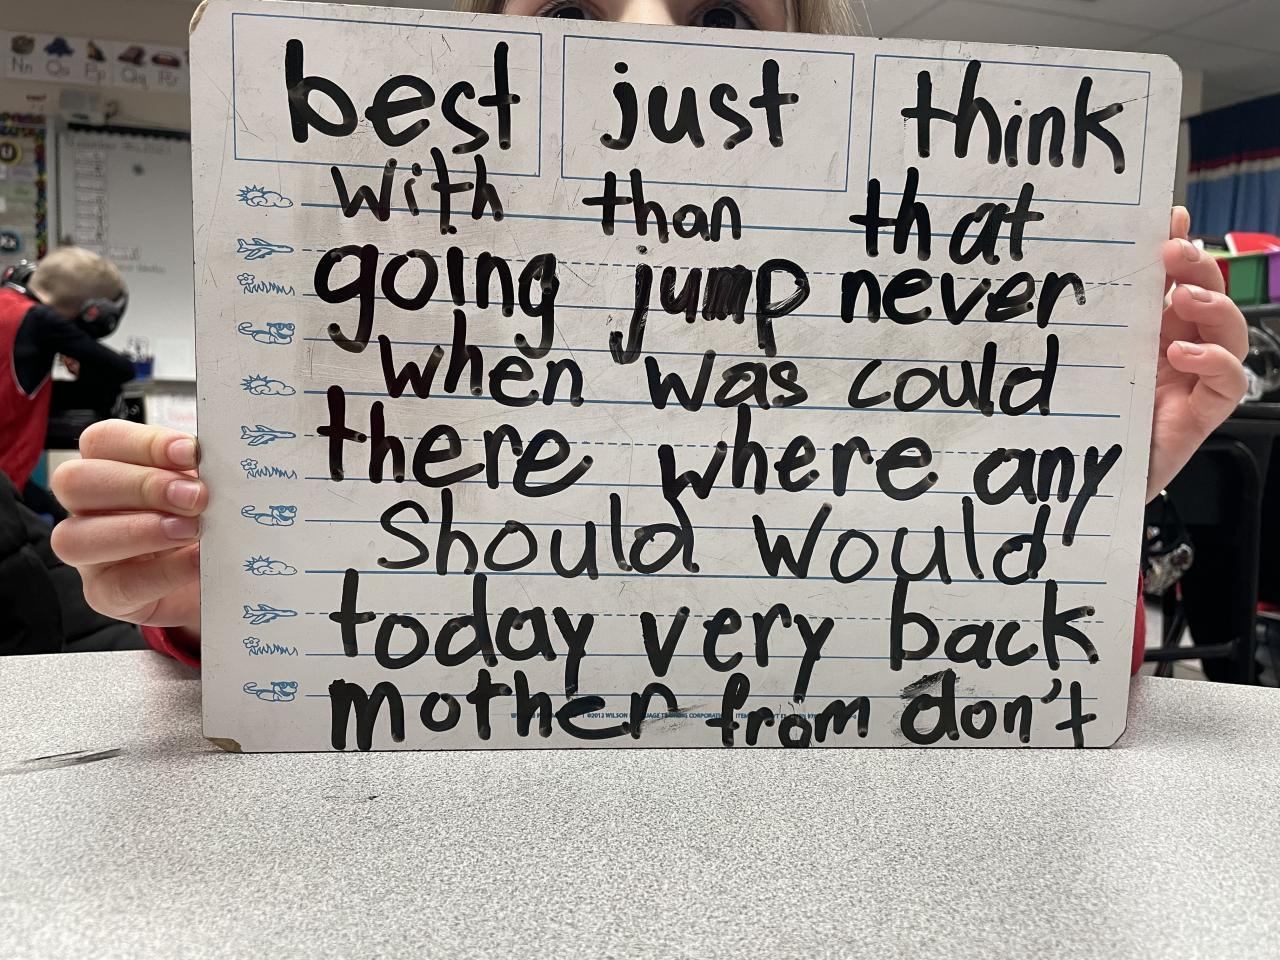 best just think
with than that
going jump never
when was could
there where any
should would
today very back
mother from don't
Nn Oo Pp Qq Rr
©2012 WILSON